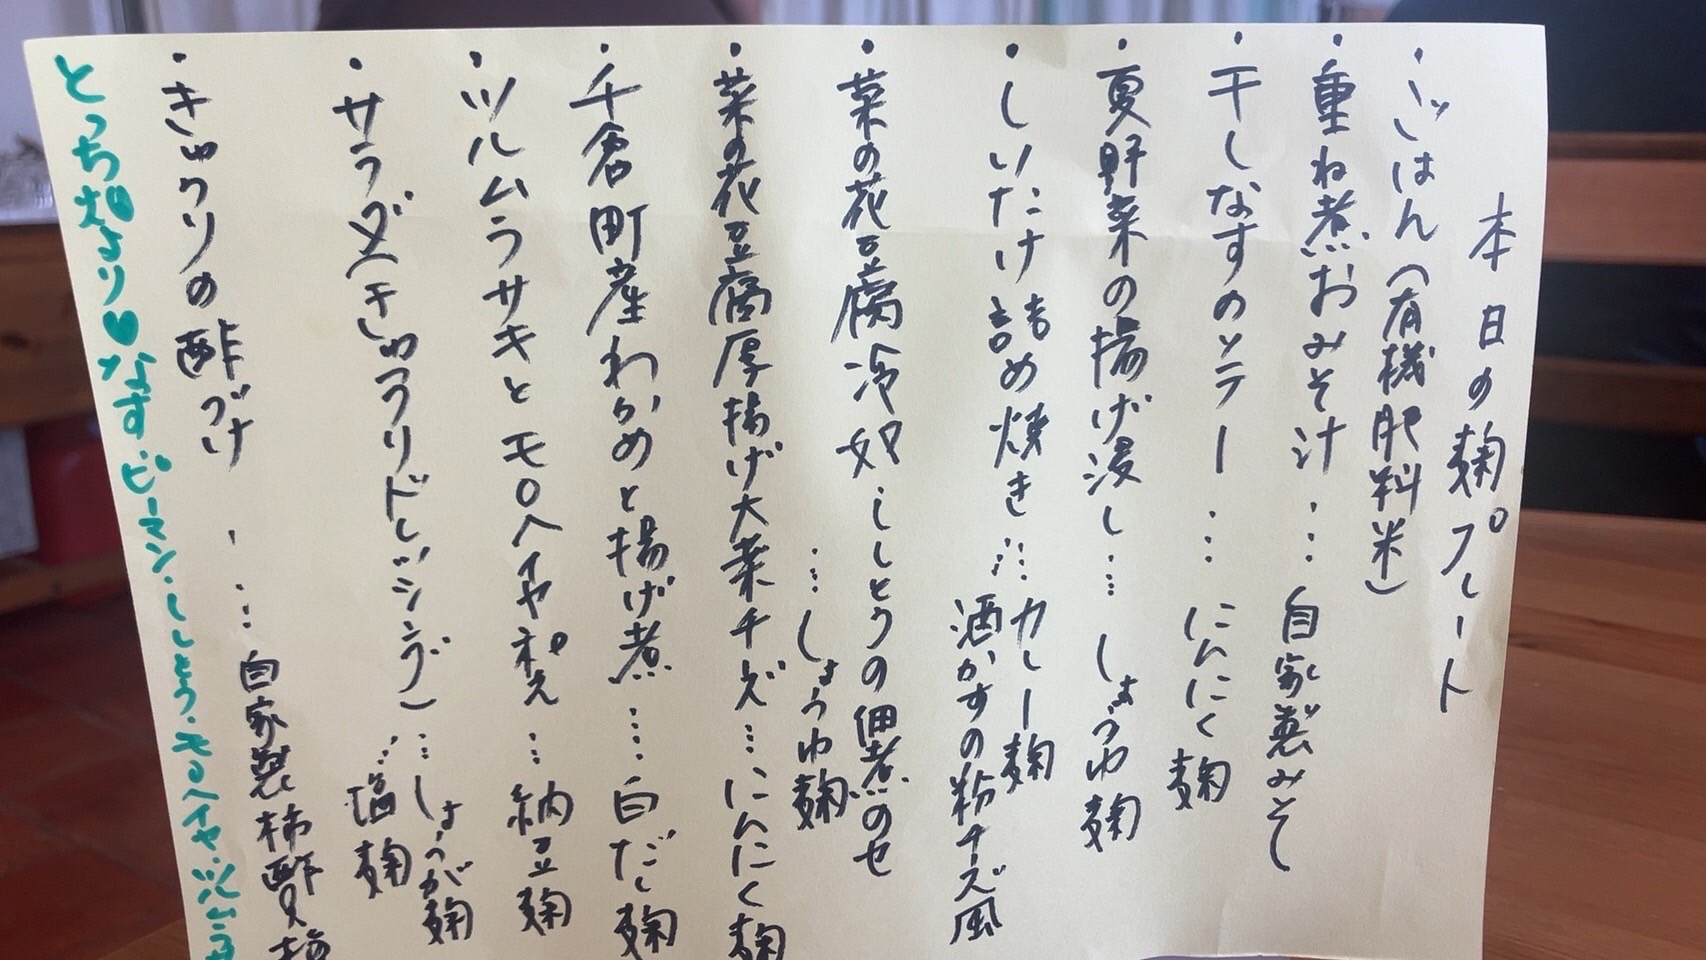 本日の麹プレート
・ごはん(有機肥料米)
・重ね煮おみそ汁…自家製みそ
・干しなすのソテー…にんにく麹
・夏野菜の揚げ浸し…しょうゆ麹
・しいたけ詰め焼き…カレー麹
酒かすの粉チーズ風
・菜の花豆腐冷奴・ししとうの佃煮のせ
…しょうゆ麹
・菜の花豆腐厚揚げ大葉チーズ…にんにく麹
・千倉町産わかめと揚げ煮…白だし麹
・ツルムラサキとモロヘイヤ和え…納豆麹
・サラダ(きゅうりドレッシング)…しょうが麹
…塩麹
・きゅうりの酢づけ…自家製柿酢
とっち畑より♥なす・ピーマン・ししとう・モロヘイヤ・ツルムラ